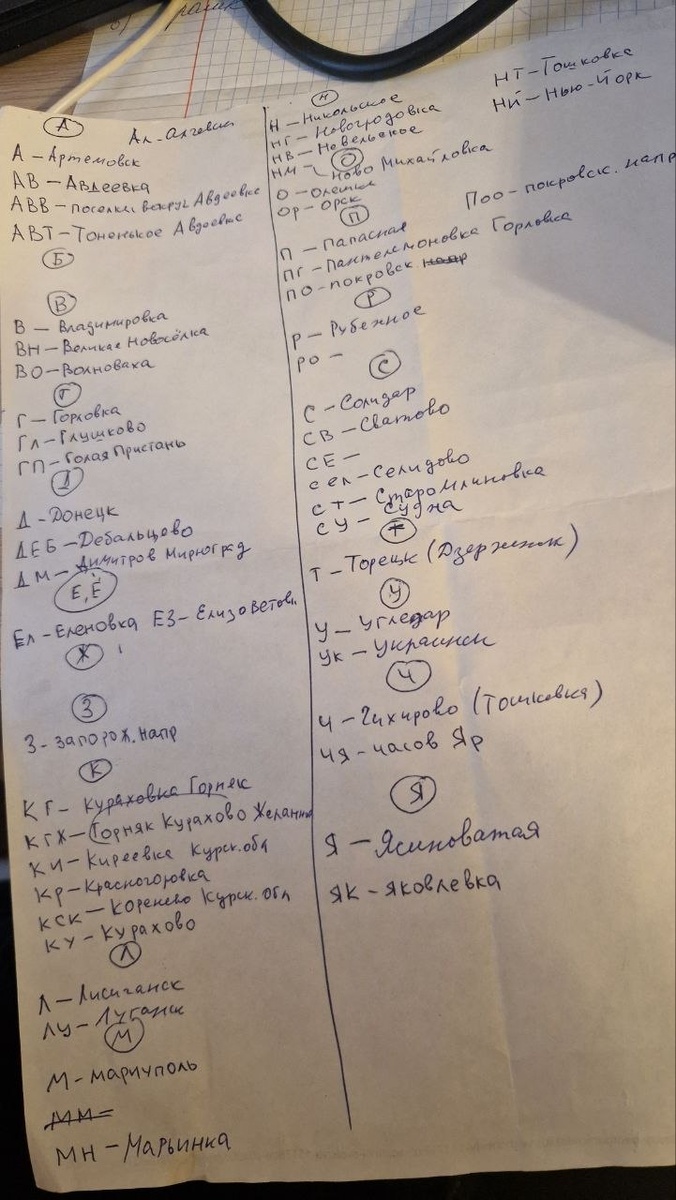 А
Ал-Алчевск
А - Артемовск
АВ - Авдеевка
АВВ - поселки вокруг Авдеевке
АВТ - Тоненькое Авдеевке
Б
В
В - Владимировка
ВН - Великая Новосёлка
ВО - Волноваха
Г
Г - Горловка
Гл - Глушково
ГП - Голая Пристань
Д
Д - Донецк
ДЕБ - Дебальцево
ДМ - Димитров Мирноград
Е, Ё
Ел - Еленовка ЕЗ - Елизоветовк
Ж
З
З - запорож. напр
К
КГ - Кураховка Горняк
КГЖ - Горняк Курахово Желанно
КИ - Киреевка Курск. обл
Кр - Красногоровка
КСК - Коренево Курск. обл
КУ - Курахово
Л
Л - Лисичанск
ЛУ - Луганск
М
М - мариуполь
ММ =
МН - Марьинка
Н
Н - Никольское
НГ - Новогродовка
НВ - Невельское
НМ - Ново Михайловка
НТ - Тошковка
НЙ - Нью-Йорк
О
О - Олешки
Ор - Орск
П
П - Папасная
ПГ - Пантелемоновка Горловка
ПО - покровск напр
Поо - покровск. напр
Р
Р - Рубежное
РО -
С
С - Солидар
СВ - Сватово
СЕ -
сел - Селидово
СТ - Старомлиновка
СУ - Суджа
Т
Т - Торецк (Дзержинск)
У
У - Угледар
Ук - Украинск
Ч
Ч - Чихирово (Тошковка)
ЧЯ - часов Яр
Я
Я - Ясиноватая
ЯК - Яковлевка